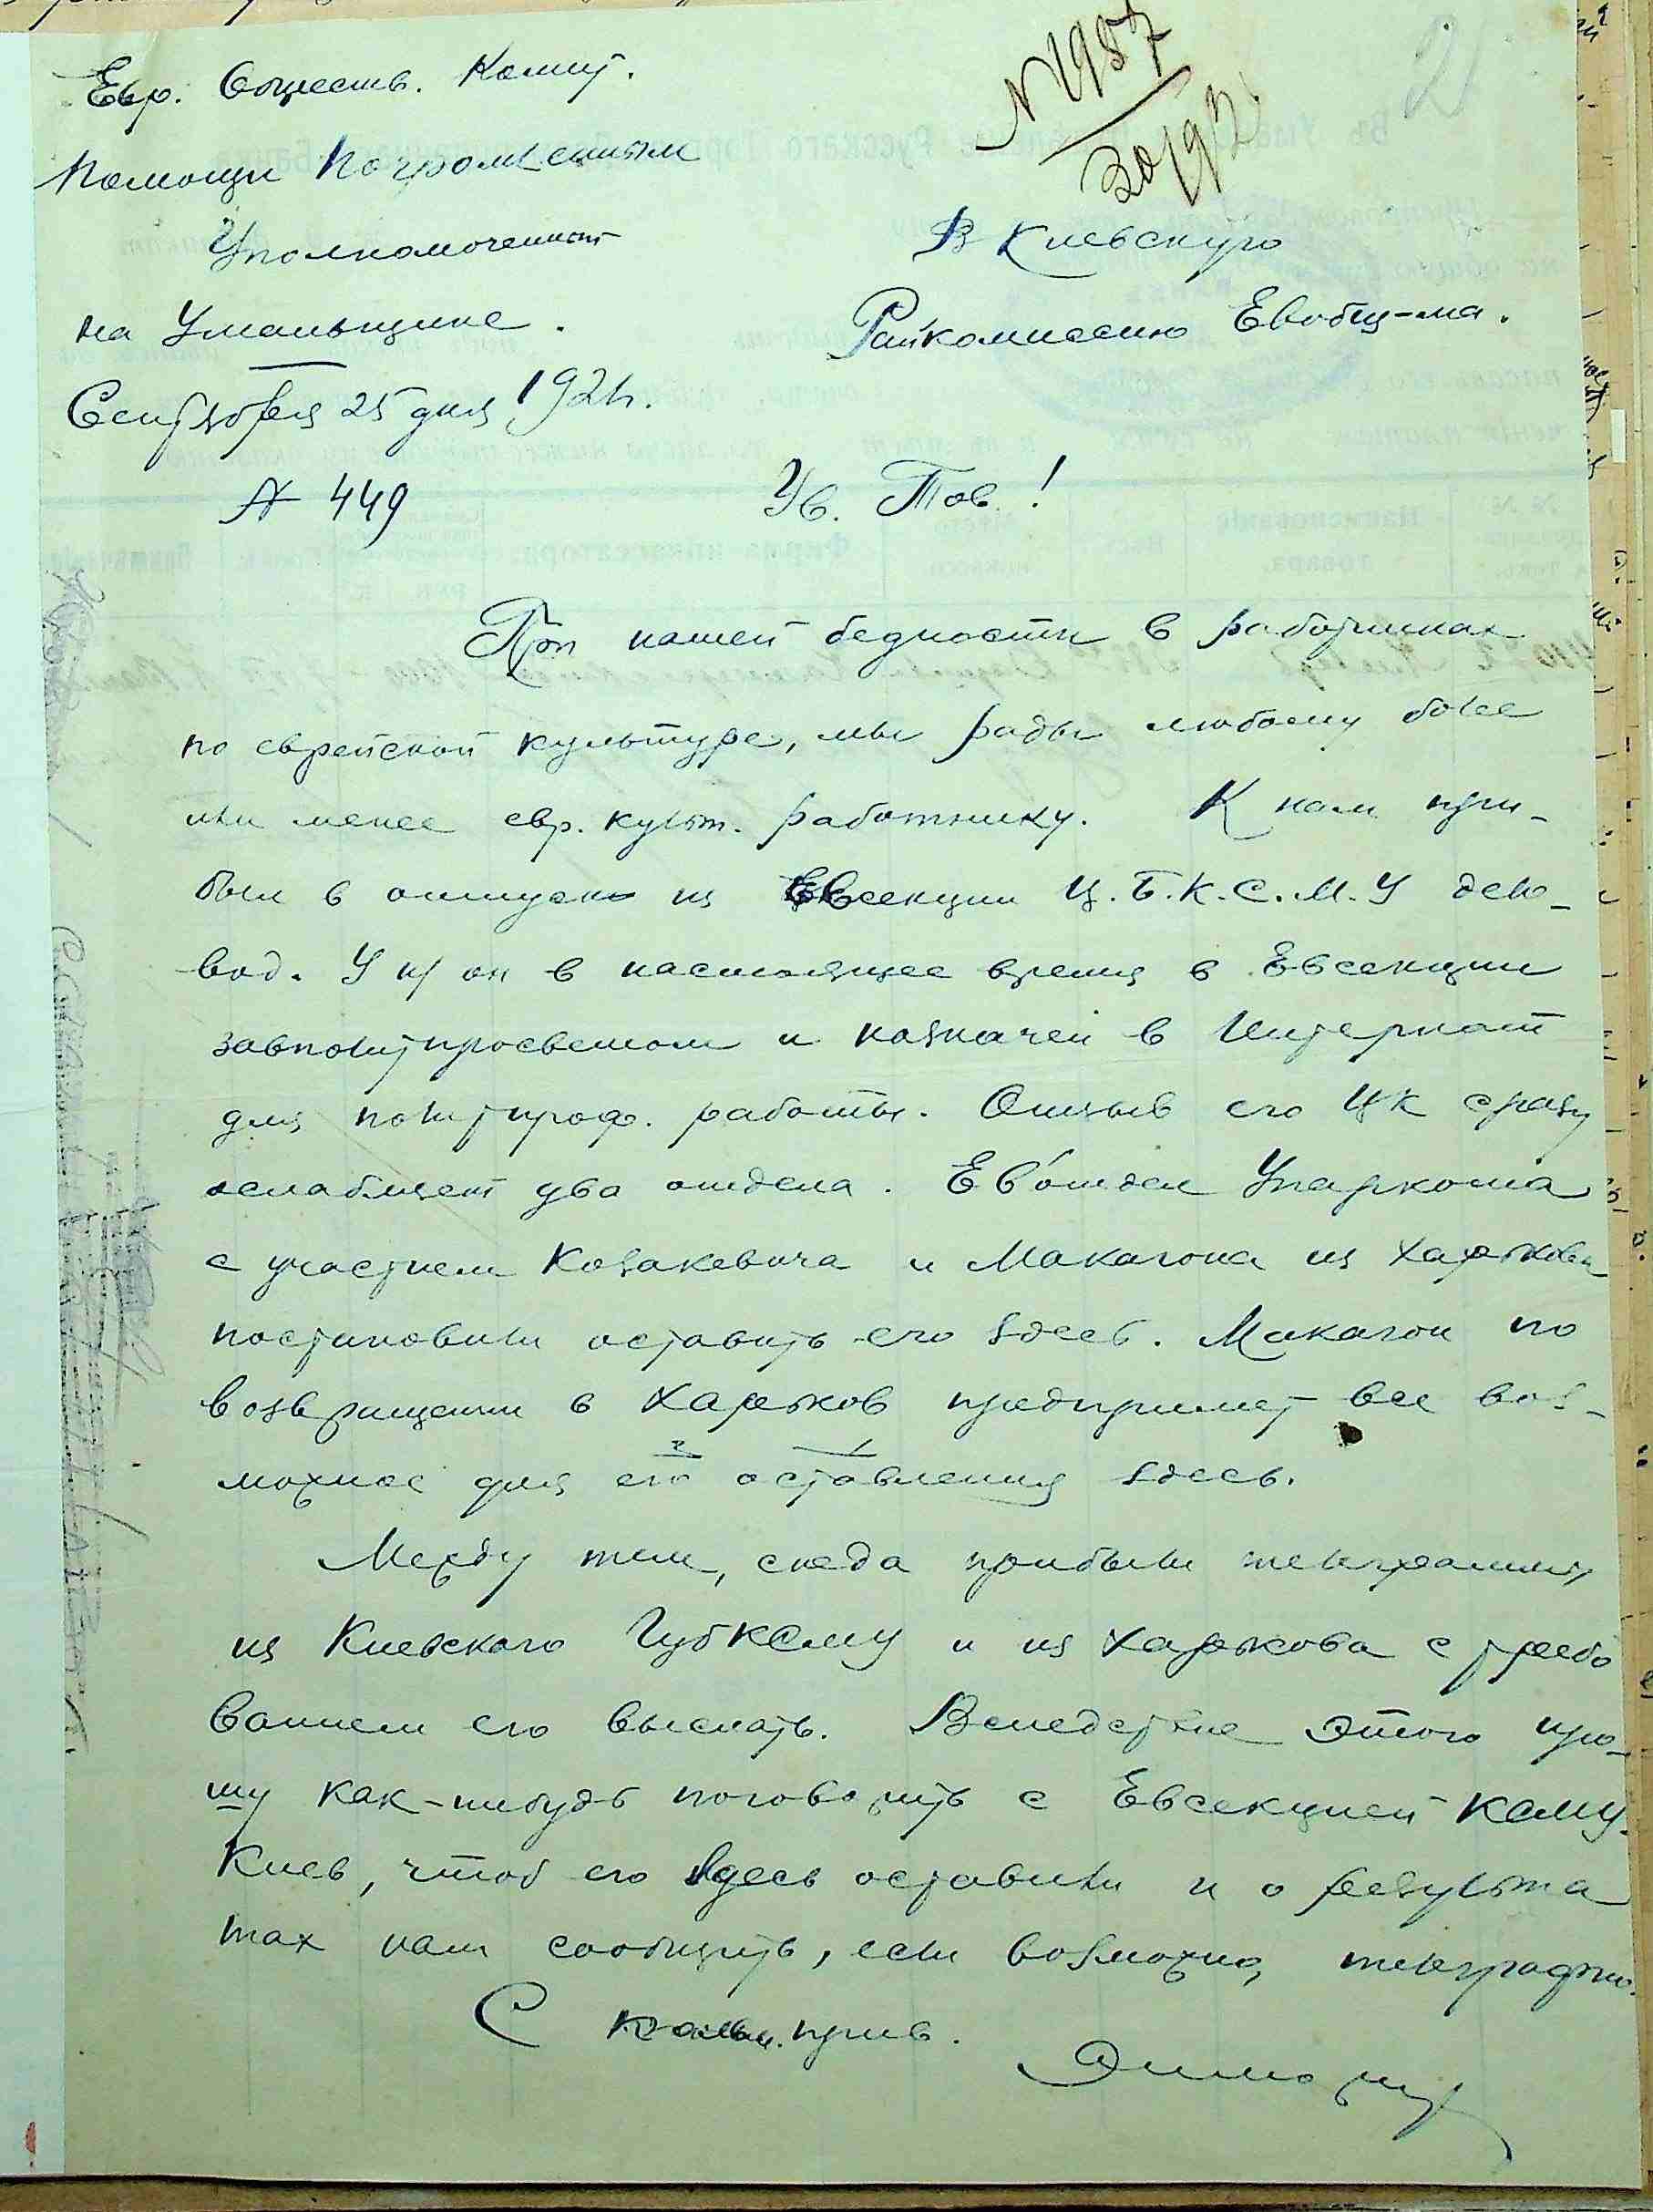 Евр. Обществ. Комит.
Помощи Погромленным
Уполномоченный
на Уманьщине.
Сентября 25 дня 1921 г.
№ 449
N 1987
30/9 21
2
В Киевскую
Райкомиссию Евобщ-ма.
Ув. Тов.!
При нашей бедности в работниках
по еврейской культуре, мы рады любому более
или менее евр. культ. работнику. К нам при-
был в отпуск из Евсекции Ц.Б.К.С.М.У
вод. У н/ он в настоящее время в Евсекции
завполитпросветом и назначен в Интернат
для политпроф. работы. Отзыв его ЦК сразу
ослабляет два отдела. Ев'отдел Упаркома
с участием Козакевича и Макагона из Харькова
постановили оставить его здесь. Макагон по
возвращении в Харьков предпримет все воз-
можное для его оставления здесь.
Между тем, сюда прибыли телеграммы
из Киевского ГубКСМУ и из Харькова с требо
ванием его выслать. Вследствие этого про-
шу как-нибудь поговорить с Евсекцией КСМУ.
Киев, чтоб его здесь оставили и о результа
тах нам сообщить, если возможно, телеграфно.
С комм. прив.